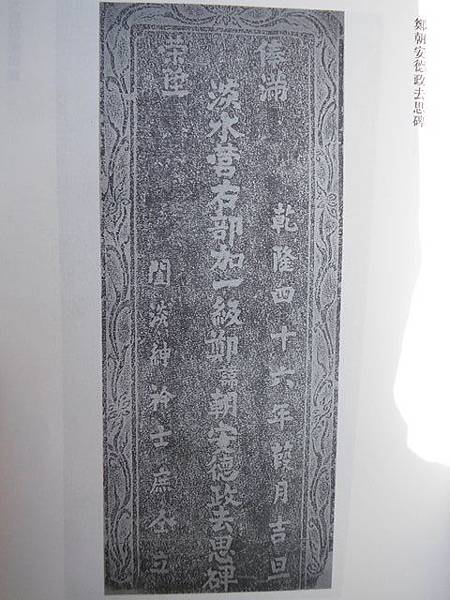 鄭朝安德政去思碑
俸滿
乾隆四十六年葭月吉旦
淡水營右部加一級鄭諱朝安德政去思碑
榮陞
闔淡紳衿士庶仝立